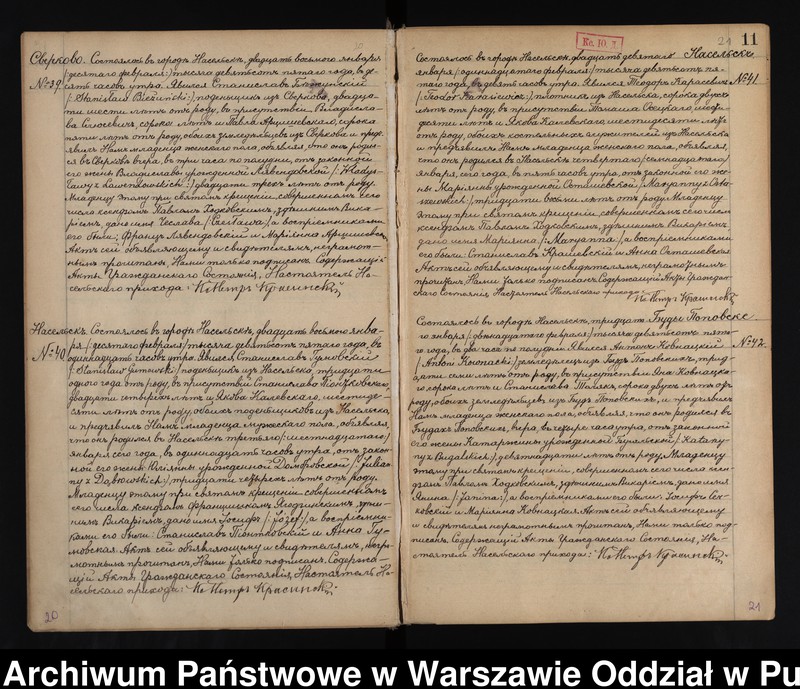 11
Кс. 10. Д.
21
Сверково. Состоялось въ городѣ Насельскѣ, двадцать восьмого января
№ 39 /:десятаго февраля:/ тысяча девятьсотъ пятаго года, въ де-
сять часовъ утра. Явился Станиславъ
/:Stanisław:/, поденщикъ изъ Сверкова, двадца-
ти шести лѣтъ отъ роду, въ присутствіи Владисла-
ва сорока лѣтъ и Павла сорока
лѣтъ отъ роду, обоихъ земледѣльцевъ изъ Сверкова и предъ-
явилъ Намъ младенца женского пола, объявляя, что онъ родил-
ся въ Сверковѣ вчера, въ три часа по полудни, отъ законной
его жены Владиславы урожденной Лявендовской /:Włady-
sławy z Lawendowskich:/ двадцати трехъ лѣтъ отъ роду.
Младенцу этому при святомъ крещеніи, совершенномъ сего
числа ксендзомъ Павломъ Ходковскимъ, здѣшнимъ Вика-
ріемъ, дано имя Чеслава /:Czesława:/, а воспріемниками
его были: Францъ Лявендовскій и Маріянна
Актъ сей объявляющему и свидѣтелямъ, неграмот-
нымъ прочитанъ, Нами только подписанъ. Содержащій
Акты Гражданскаго Состоянія, Настоятель На-
сельского прихода: Кс Петръ Красинскій
Насельскъ. Состоялось въ городѣ Насельскѣ, двадцать восьмого янва-
№ 40 ря /:десятаго февраля:/ тысяча девятьсотъ пятаго года, въ
одиннадцать часовъ утра. Явился Станиславъ Гумовскій
/:Stanisław Gumowski:/ поденщикъ изъ Насельска, тридцати
одного года отъ роду, въ присутствіи Станислава Піонтковского,
двадцати четырехъ лѣтъ и Якова Калевского, шестиде-
сяти лѣтъ отъ роду, обоихъ поденщиковъ изъ Насельска,
и предъявилъ Намъ младенца мужеского пола, объявляя,
что онъ родился въ Насельскѣ третьяго /:шестнадцатаго:/
января сего года, въ одиннадцать часовъ утра, отъ закон-
ной его жены Юліянны урожденной Домбровской /:Julian-
ny z Dąbrowskich:/, тридцати четырехъ лѣтъ отъ роду.
Младенцу этому при святомъ крещеніи совершенномъ
сего числа ксендзомъ Францишкомъ здѣш-
нимъ Викаріемъ, дано имя Іосифъ /:Józef:/, а воспріемни-
ками его были: Станиславъ Піонтковскій и Анна Гу-
мовская. Актъ сей объявляющему и свидѣтелямъ, негра-
мотнымъ прочитанъ, Нами только подписанъ. Содержа-
щій Акты Гражданскаго Состоянія, Настоятель На-
сельского прихода: Кс Петръ Красинскій
20
Состоялось въ городѣ Насельскѣ, двадцать девятаго Насельскъ
января /:одиннадцатаго февраля:/ тысяча девятьсотъ пя- № 41.
таго года, въ девять часовъ утра. Явился Теодоръ Карасевичъ
/:Teodor Karasiewicz:/, плотникъ изъ Насельска, сорока двухъ
лѣтъ отъ роду, въ присутствіи Томаша шести-
десяти лѣтъ и Якова Калевского шестидесяти лѣтъ
отъ роду, обоихъ костельныхъ служителей изъ Насельска
и предъявилъ Намъ младенца женского пола, объявляя,
что онъ родился въ Насельскѣ четвертаго /:семнадцатаго:/
января, сего года, въ пять часовъ утра, отъ законной его же-
ны Маріянны урожденной Осташевской /:Maryanny z Osta-
szewskich:/, тридцати восьми лѣтъ отъ роду. Младенцу
этому при святомъ крещеніи, совершенномъ сего числа
ксендзомъ Павломъ Ходковскимъ, здѣшнимъ Викаріемъ,
дано имя Маріянна /:Maryanna:/, а воспріемниками
его были: Станиславъ и Анна Осташевская
Актъ сей объявляющему и свидѣтелямъ, неграмотнымъ
прочитанъ, Нами только подписанъ. Содержащій Акты Граждан-
скаго Состоянія, Настоятель Насельского прихода:
Кс Петръ Красинскій
Состоялось въ городѣ Насельскѣ, тридцата- Буды Поповске
го января /:двѣнадцатаго февраля:/ тысяча девятьсотъ пята- № 42.
го года, въ два часа по полудни. Явился Антонъ Ковнацкій
/:Antoni Kownacki:/ земледѣлецъ изъ Будъ Поповскихъ, трид-
цати семи лѣтъ отъ роду, въ присутствіи Яна Ковнацка-
го сорока лѣтъ и Станислава сорока двухъ лѣтъ отъ
роду, обоихъ земледѣльцевъ изъ Будъ Поповскихъ, и предъявилъ
Намъ младенца женского пола, объявляя, что онъ родился въ
Будахъ Поповскихъ, вчера, въ четыре часа утра, отъ законной
его жены Катаржины урожденной /:Katarzy-
ny z:/, девятнадцати лѣтъ отъ роду. Младенцу
этому при святомъ крещеніи, совершенномъ сего числа ксен-
дзомъ Павломъ Ходковскимъ, здѣшнимъ Викаріемъ, дано имя
Янина /:Janina:/, а воспріемниками его были: Іосифъ
и Маріянна Ковнацкая. Актъ сей объявляющему
и свидѣтелямъ неграмотнымъ прочитанъ, Нами только под-
писанъ. Содержащій Акты Гражданскаго Состоянія, На-
стоятель Насельского прихода: Кс Петръ Красинскій.
21
Archiwum Państwowe w Warszawie Oddział w Pu